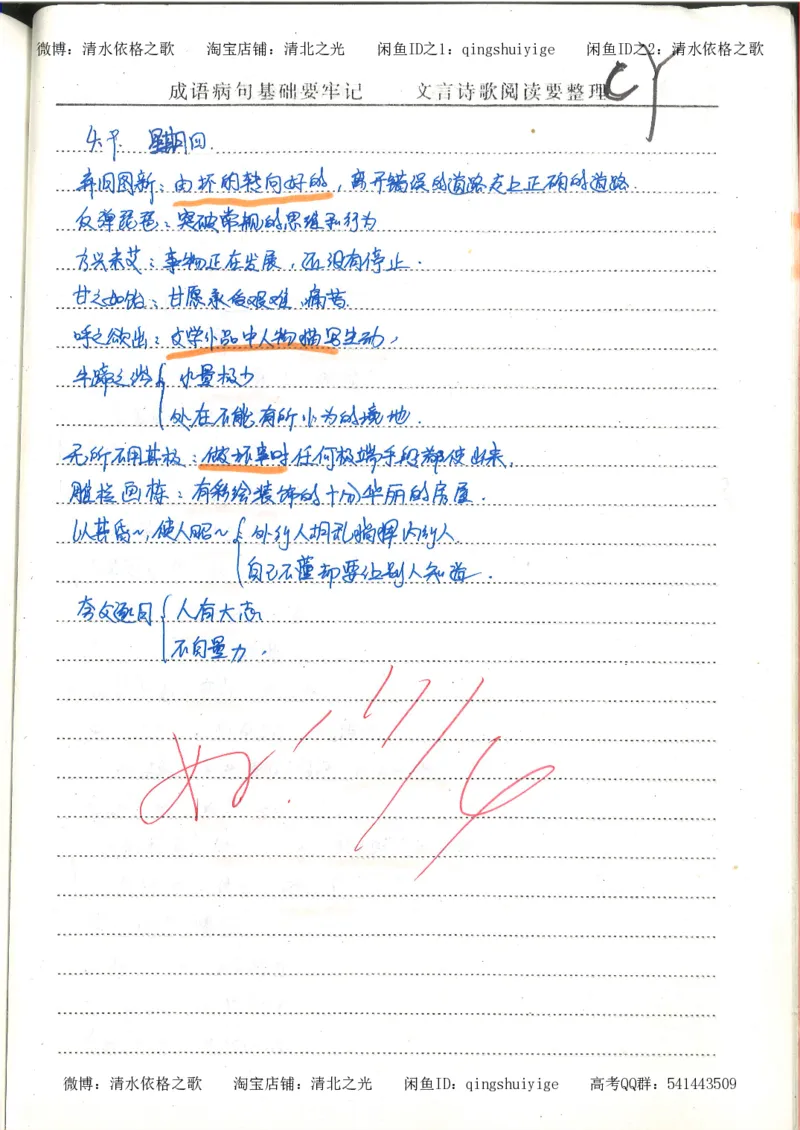 微博：清水依格之歌 淘宝店铺：清北之光 闲鱼ID之1：qingshuiyige 闲鱼ID之2：清水依格之歌
成语病句基础要牢记 文言诗歌阅读要整理
星期四
弃旧图新：由坏的转向好的，离开错误的道路走上正确的道路.
反弹琵琶：突破常规的思维和行为
方兴未艾：事物正在发展，还没有停止.
甘之如饴：甘愿承受艰难、痛苦.
呼之欲出：文学作品中人物描写生动，
牛蹄之涔 水量极少
处在不能有所作为的境地.
无所不用其极：做坏事时任何极端手段都使出来.
雕栏画栋：有彩绘装饰的十分华丽的房屋.
以其昏~,使人昭~ 外行人胡乱指挥内行人.
自己不懂却要让别人知道.
夸父逐日 人有大志
不自量力.
好!
微博：清水依格之歌 淘宝店铺：清北之光 闲鱼ID：qingshuiyige 高考QQ群：541443509